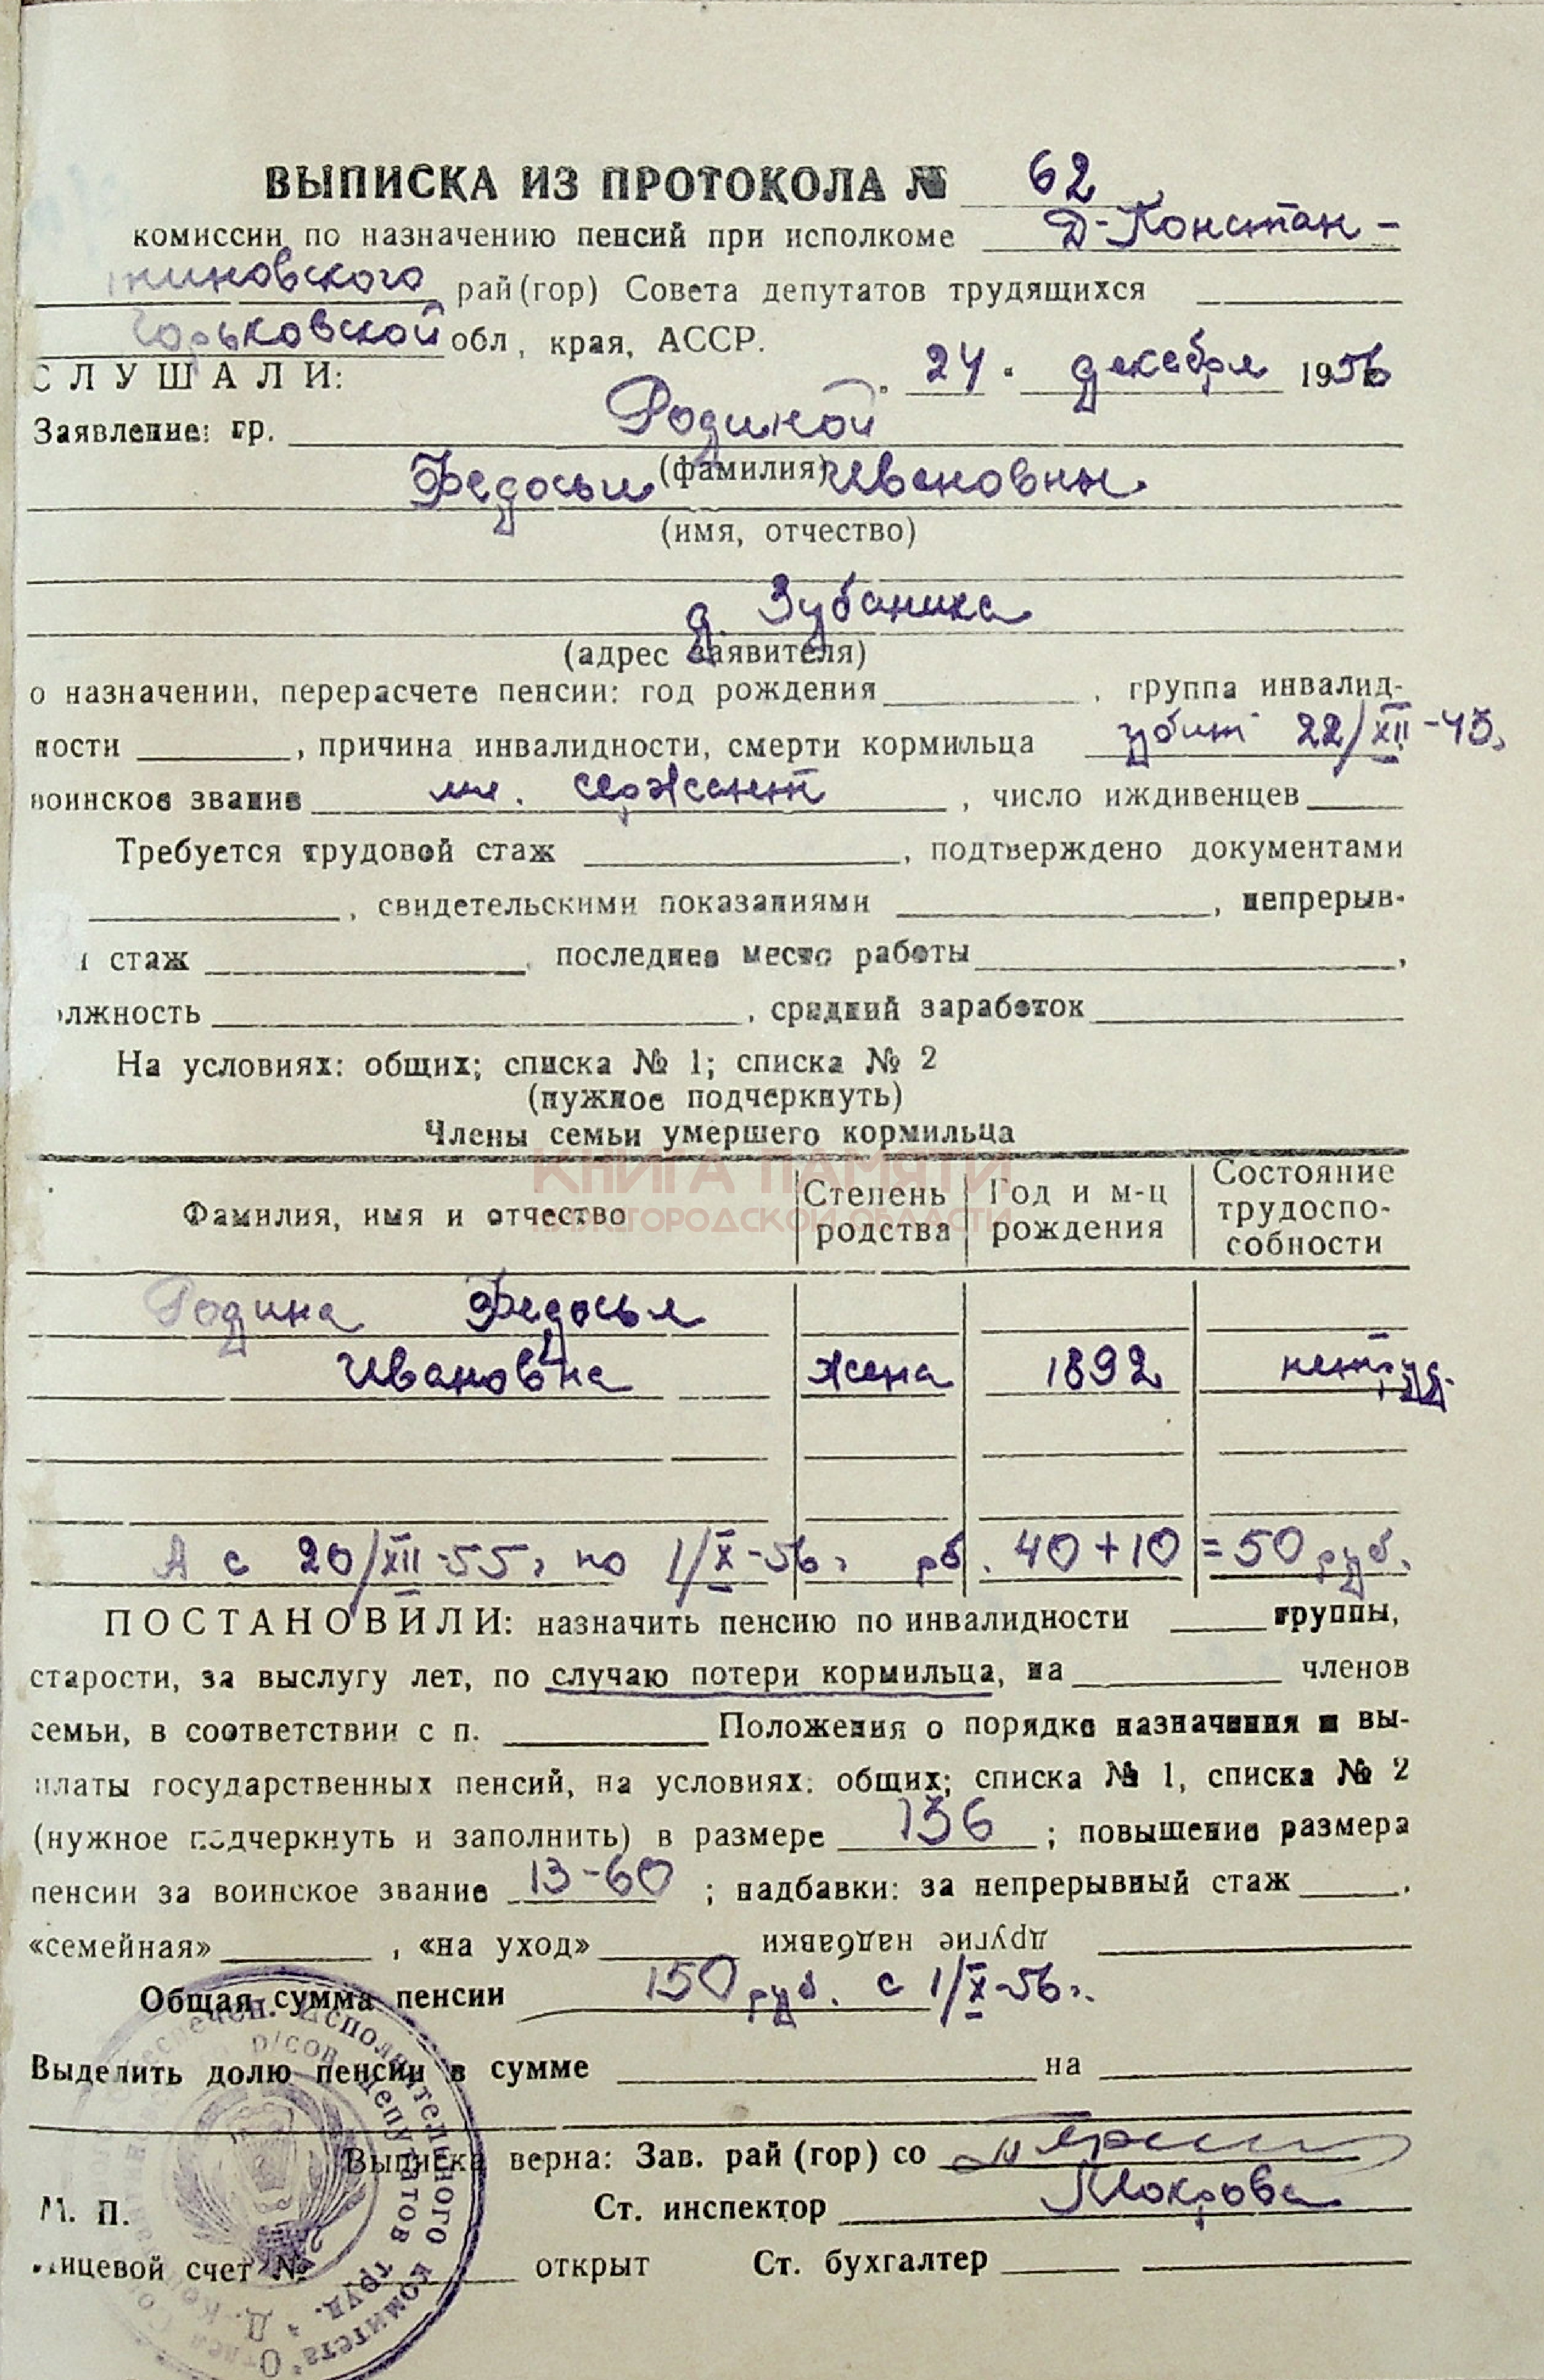 ВЫПИСКА ИЗ ПРОТОКОЛА № 62
комиссии по назначению пенсий при исполкоме Д-Констан-
тиновского рай(гор) Совета депутатов трудящихся
Горьковской обл, края, АССР.
СЛУШАЛИ: 24. декабря 1956
Заявление: гр. Родиной
(фамилия)
Федосьи Ивановны
(имя, отчество)
д. Зубаниха
(адрес заявителя)
о назначении, перерасчете пенсии: год рождения , группа инвалид-
ности , причина инвалидности, смерти кормильца убит 22/XII-43г
воинское звание мл. сержант , число иждивенцев
Требуется трудовой стаж , подтверждено документами
, свидетельскими показаниями , непрерыв-
й стаж , последнее место работы ,
олжность , средний заработок
На условиях: общих; списка № 1; списка № 2
(нужное подчеркнуть)
Члены семьи умершего кормильца
КНИГА ПАМЯТИ
НИЖЕГОРОДСКОЙ ОБЛАСТИ
Фамилия, имя и отчество Степень родства Год и м-ц рождения Состояние трудоспо-собности
Родина Федосья
Ивановна жена 1892 нетруд.
А с 20/XII-55г по 1/X-56г рб. 40+10=50 руб.
ПОСТАНОВИЛИ: назначить пенсию по инвалидности группы,
старости, за выслугу лет, по случаю потери кормильца, на членов
семьи, в соответствии с п. Положения о порядке назначения и вы-
платы государственных пенсий, на условиях: общих; списка № 1, списка № 2
(нужное подчеркнуть и заполнить) в размере 136 ; повышение размера
пенсии за воинское звание 13-60 ; надбавки: за непрерывный стаж ,
«семейная» , «на уход» другие надбавки
Общая сумма пенсии 150 руб. с 1/X-56г.
Выделить долю пенсии в сумме на
Выписка верна: Зав. рай(гор) со
М. П. Ст. инспектор Мокрова
Лицевой счет № открыт Ст. бухгалтер
Исполнительного комитета
р/сов депутатов труд.